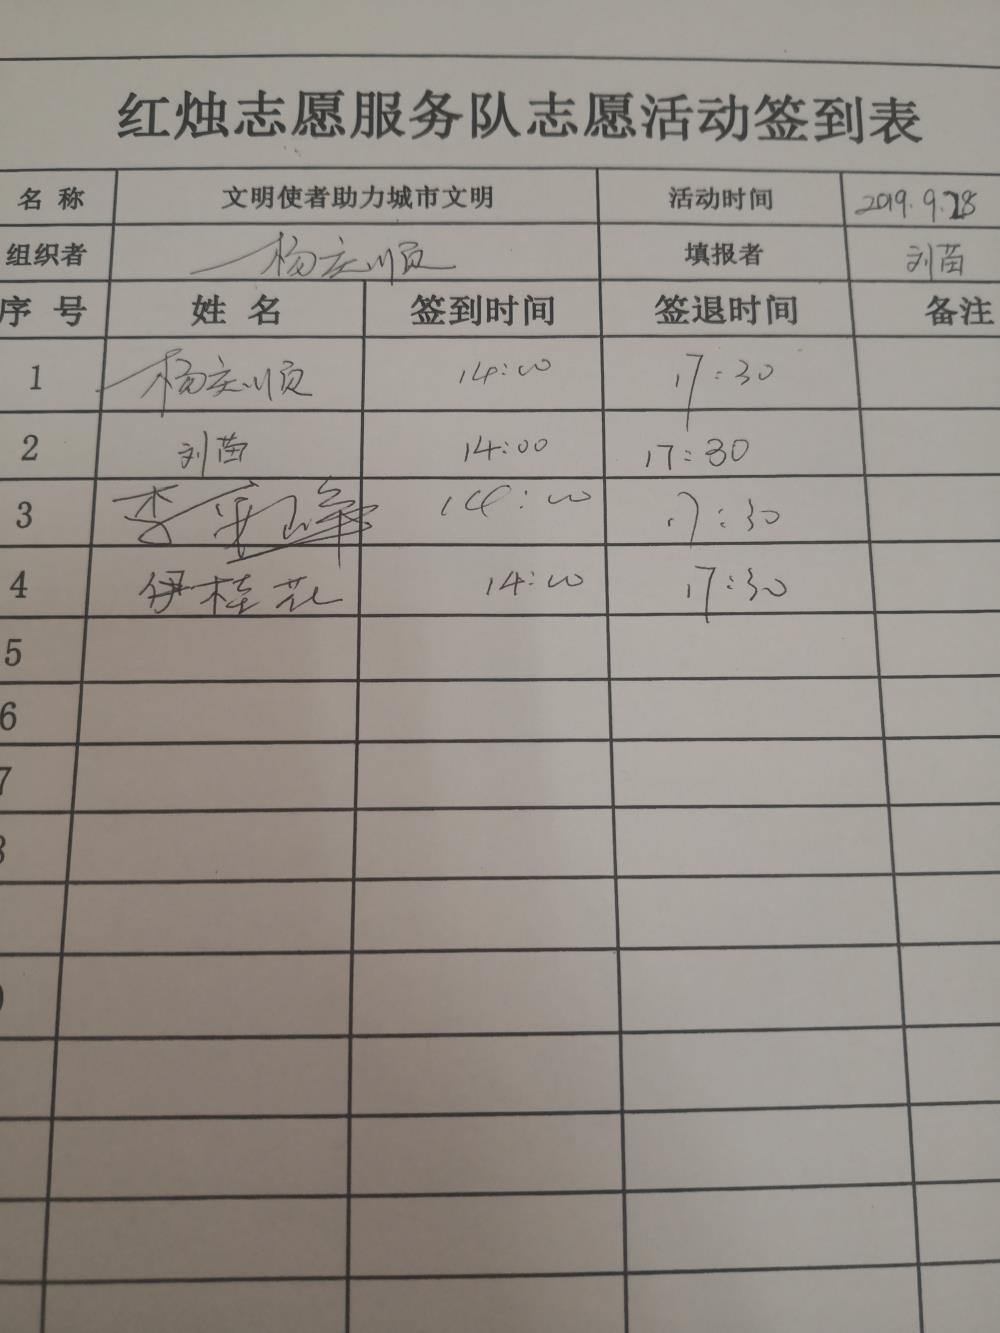 红烛志愿服务队志愿活动签到表
名 称 文明使者助力城市文明 活动时间 2019.9.28
组织者 杨庆顺 填报者 刘苗
序 号 姓 名 签到时间 签退时间 备注
1 杨庆顺 14:00 17:30
2 刘苗 14:00 17:30
3 李 峰 14:00 17:30
4 伊桂花 14:00 17:30
5
6
7